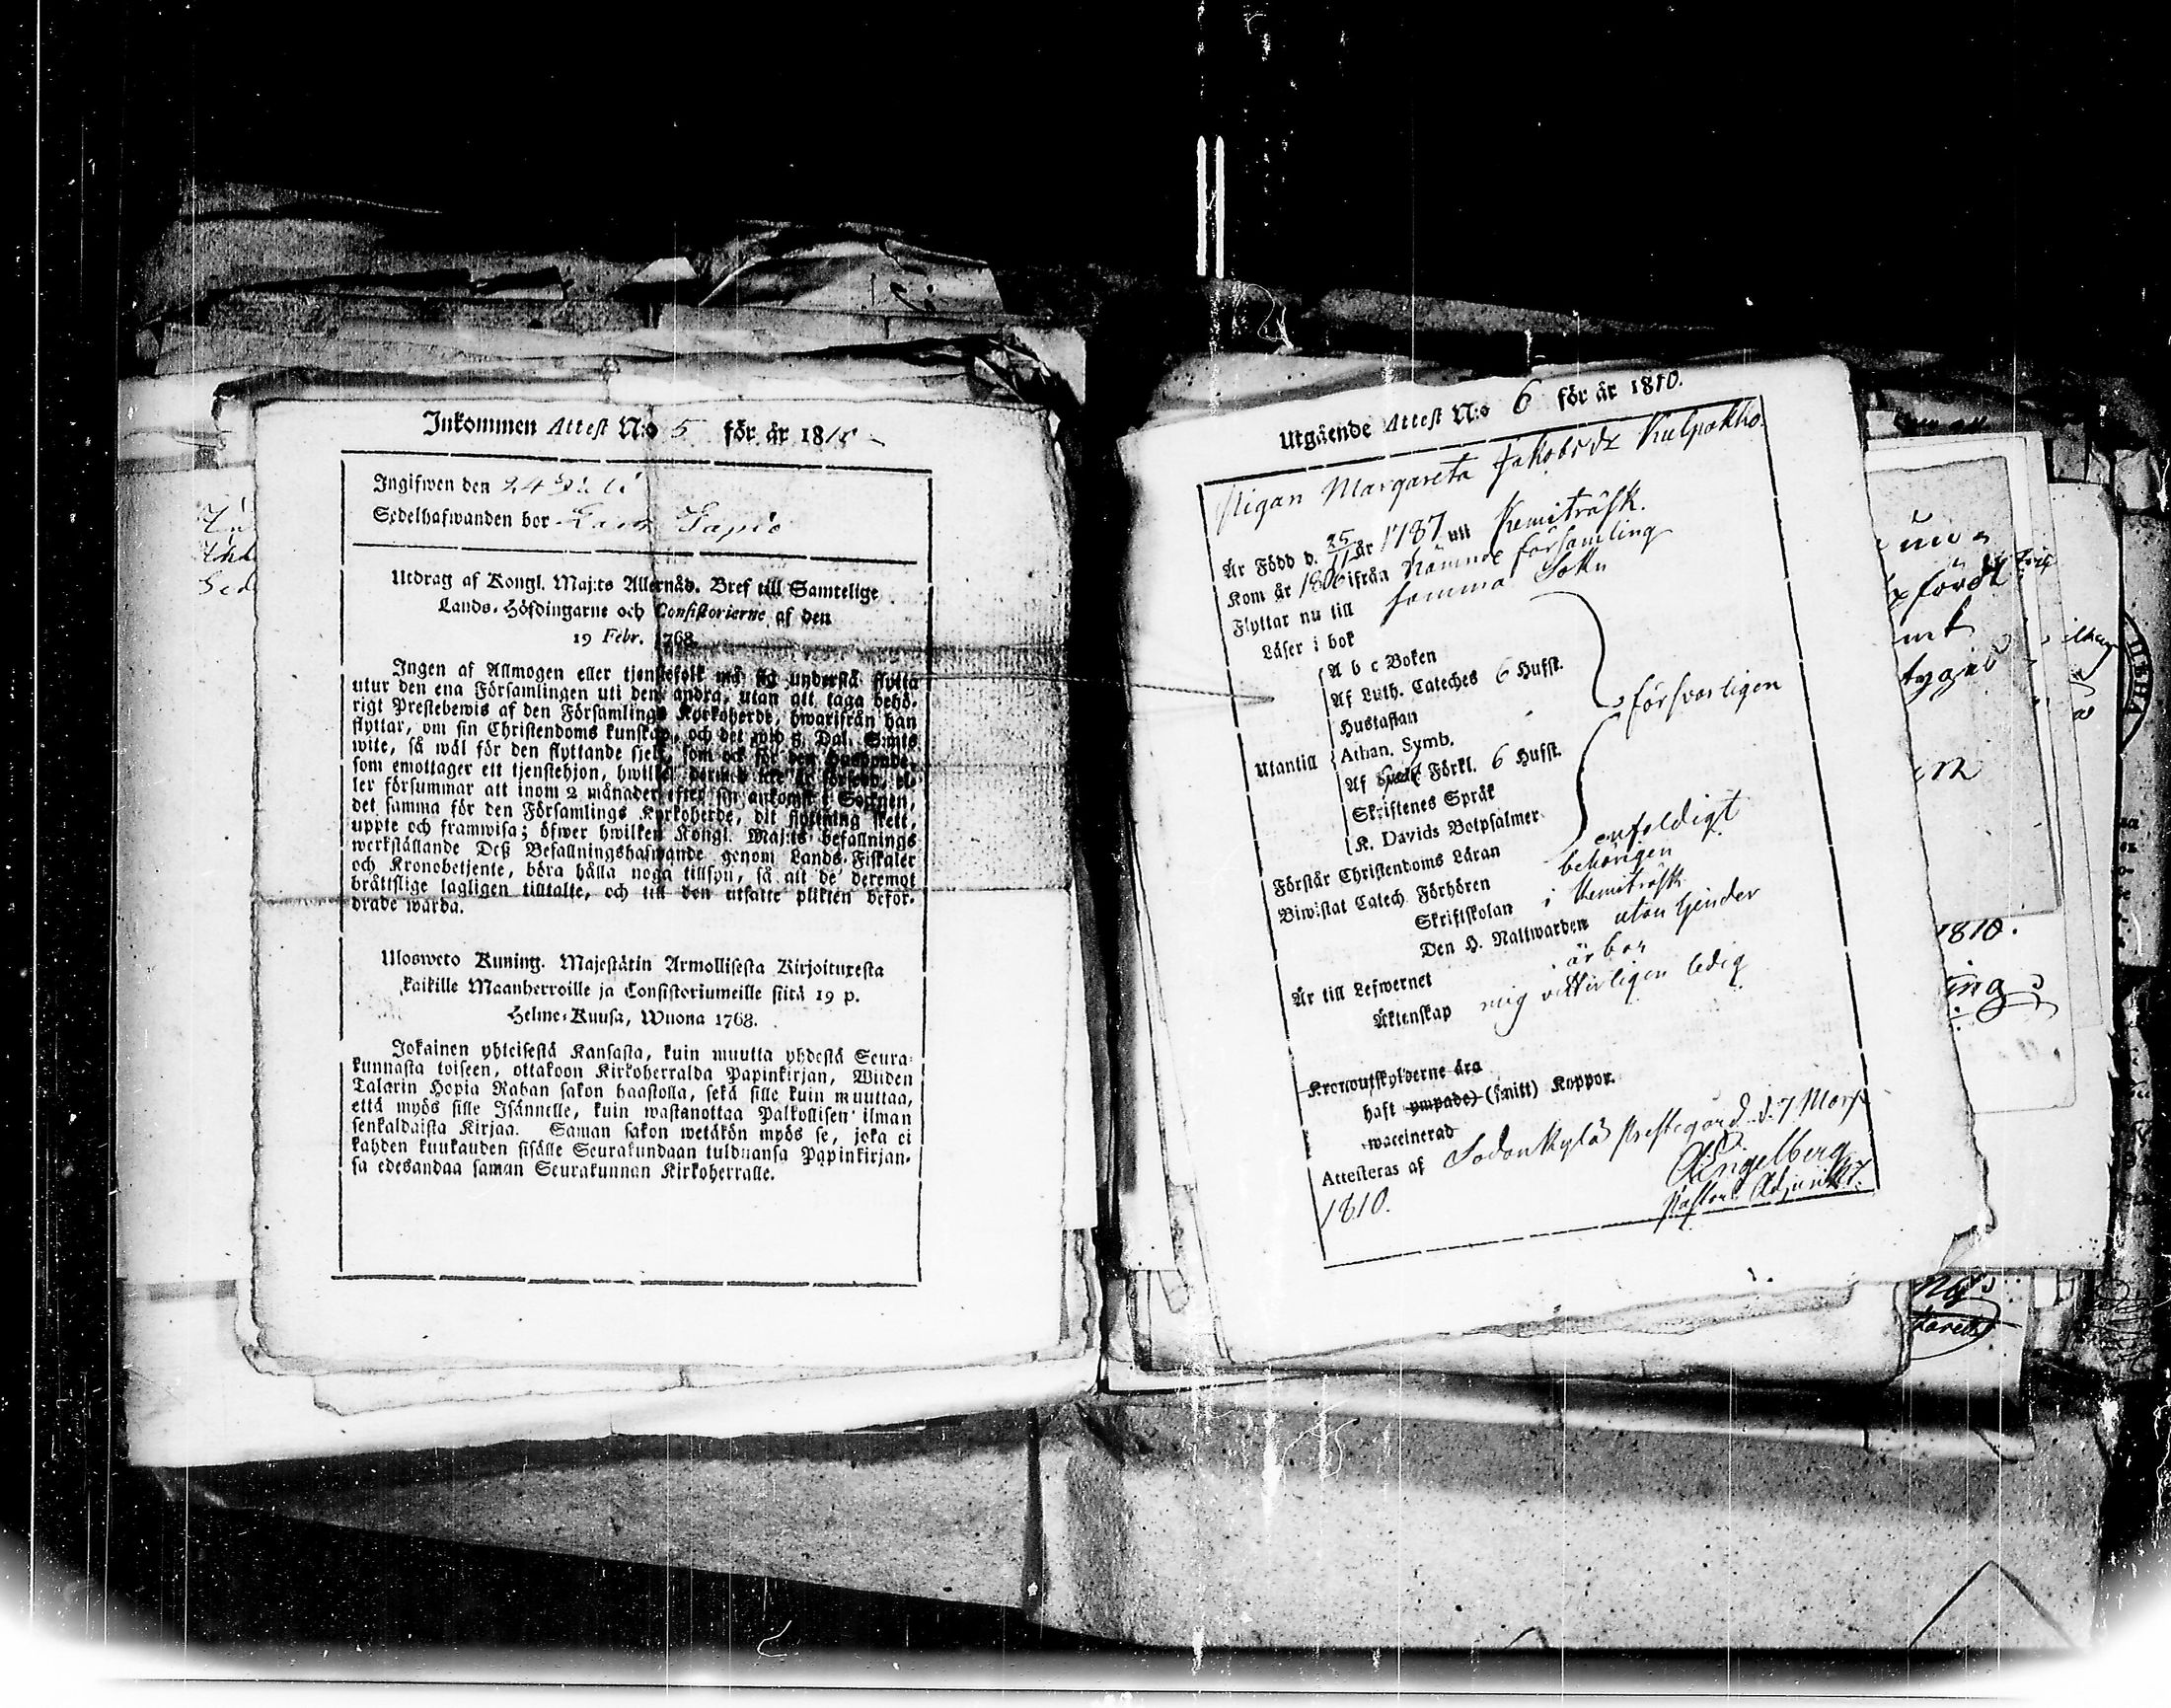 Inkommen Attest N:o 5 för år 1810
Ingifwen den 24 Juli
Sedelhafwanden bor
Utdrag af Kongl. Maj:ts Allernåd. Bref till Samtelige
Lands-Höfdingarne och Consistorierne af den
19 Febr. 1768.
Ingen af Allmogen eller tjenstefolk må sig understå flytta
utur den ena Församlingen uti den andra, utan att taga behö-
rigt Prestebewis af den Församlings Kyrkoherde, hwarifrån han
flyttar, om sin Christendoms kunskap, och det wid 5 Dal. S:mts
wite, så wäl för den flyttande sjelf, som ock för den Husbonde,
som emottager ett tjenstehjon, hwilket dermed icke är försedt, el-
ler försummar att inom 2 månader efter sin ankomst i Socknen,
det samma för den Församlings Kyrkoherde, dit flyttning skett,
uppte och framwisa; öfwer hwilken Kongl. Maj:ts befallnings
werkställande Deß Befallningshafwande genom Lands-Fiskaler
och Kronobetjente, böra hålla noga tillsyn, så att de deremot
bråttslige lagligen tilltalte, och till den utsatte plikten befor-
drade warda.
Ulosweto Kuning. Majestätin Armollisesta Kirjoituxesta
kaikille Maanherroille ja Consistoriumeille siitä 19 p.
Helme-Kuusa, Wuona 1768.
Jokainen yhteisestä Kansasta, kuin muutta yhdestä Seura-
kunnasta toiseen, ottakoon Kirkoherralda Papinkirjan, Wiiden
Talarin Hopia Rahan sakon haastolla, sekä sille kuin muuttaa,
että myös sille Isännelle, kuin wastanottaa Palkollisen ilman
senkaldaista Kirjaa. Saman sakon wetäkön myös se, joka ei
kahden kuukauden sisälle Seurakundaan tulduansa Papinkirjan-
sa edesandaa saman Seurakunnan Kirkoherralle.
Utgående Attest N:o 6 för år 1810.
Pigan Margareta Jakobsdr Kulpakko.
Är Född d. 25/11 år 1787 uti Kemiträsk.
Kom år 1806 ifrån nämnde församling
Flyttar nu till samma Sokn
Läser i bok
A b c Boken
Af Luth. Cateches 6 Hufst.
Hustaflan
försvarligen
Utantill Athan. Symb.
Af Förkl. 6 Hufst.
Skriftenes Språk
K. Davids Botpsalmer
Förstår Christendoms Läran enfaldigt
Biwistat Catech. Förhören behörigen
Skriftskolan i Kemiträsk
Den H. Nattwarden utan hinder
Är till Lefwernet ärbar
Äktenskap mig vitterligen ledig
Kronoutskylderne ära
haft ympade) (smitt) Koppor.
waccinerad
Attesteras af Sodankylä Prestegård d. 7 Mars
1810.
Engelberg
Pastors Adjunkt.
1810.